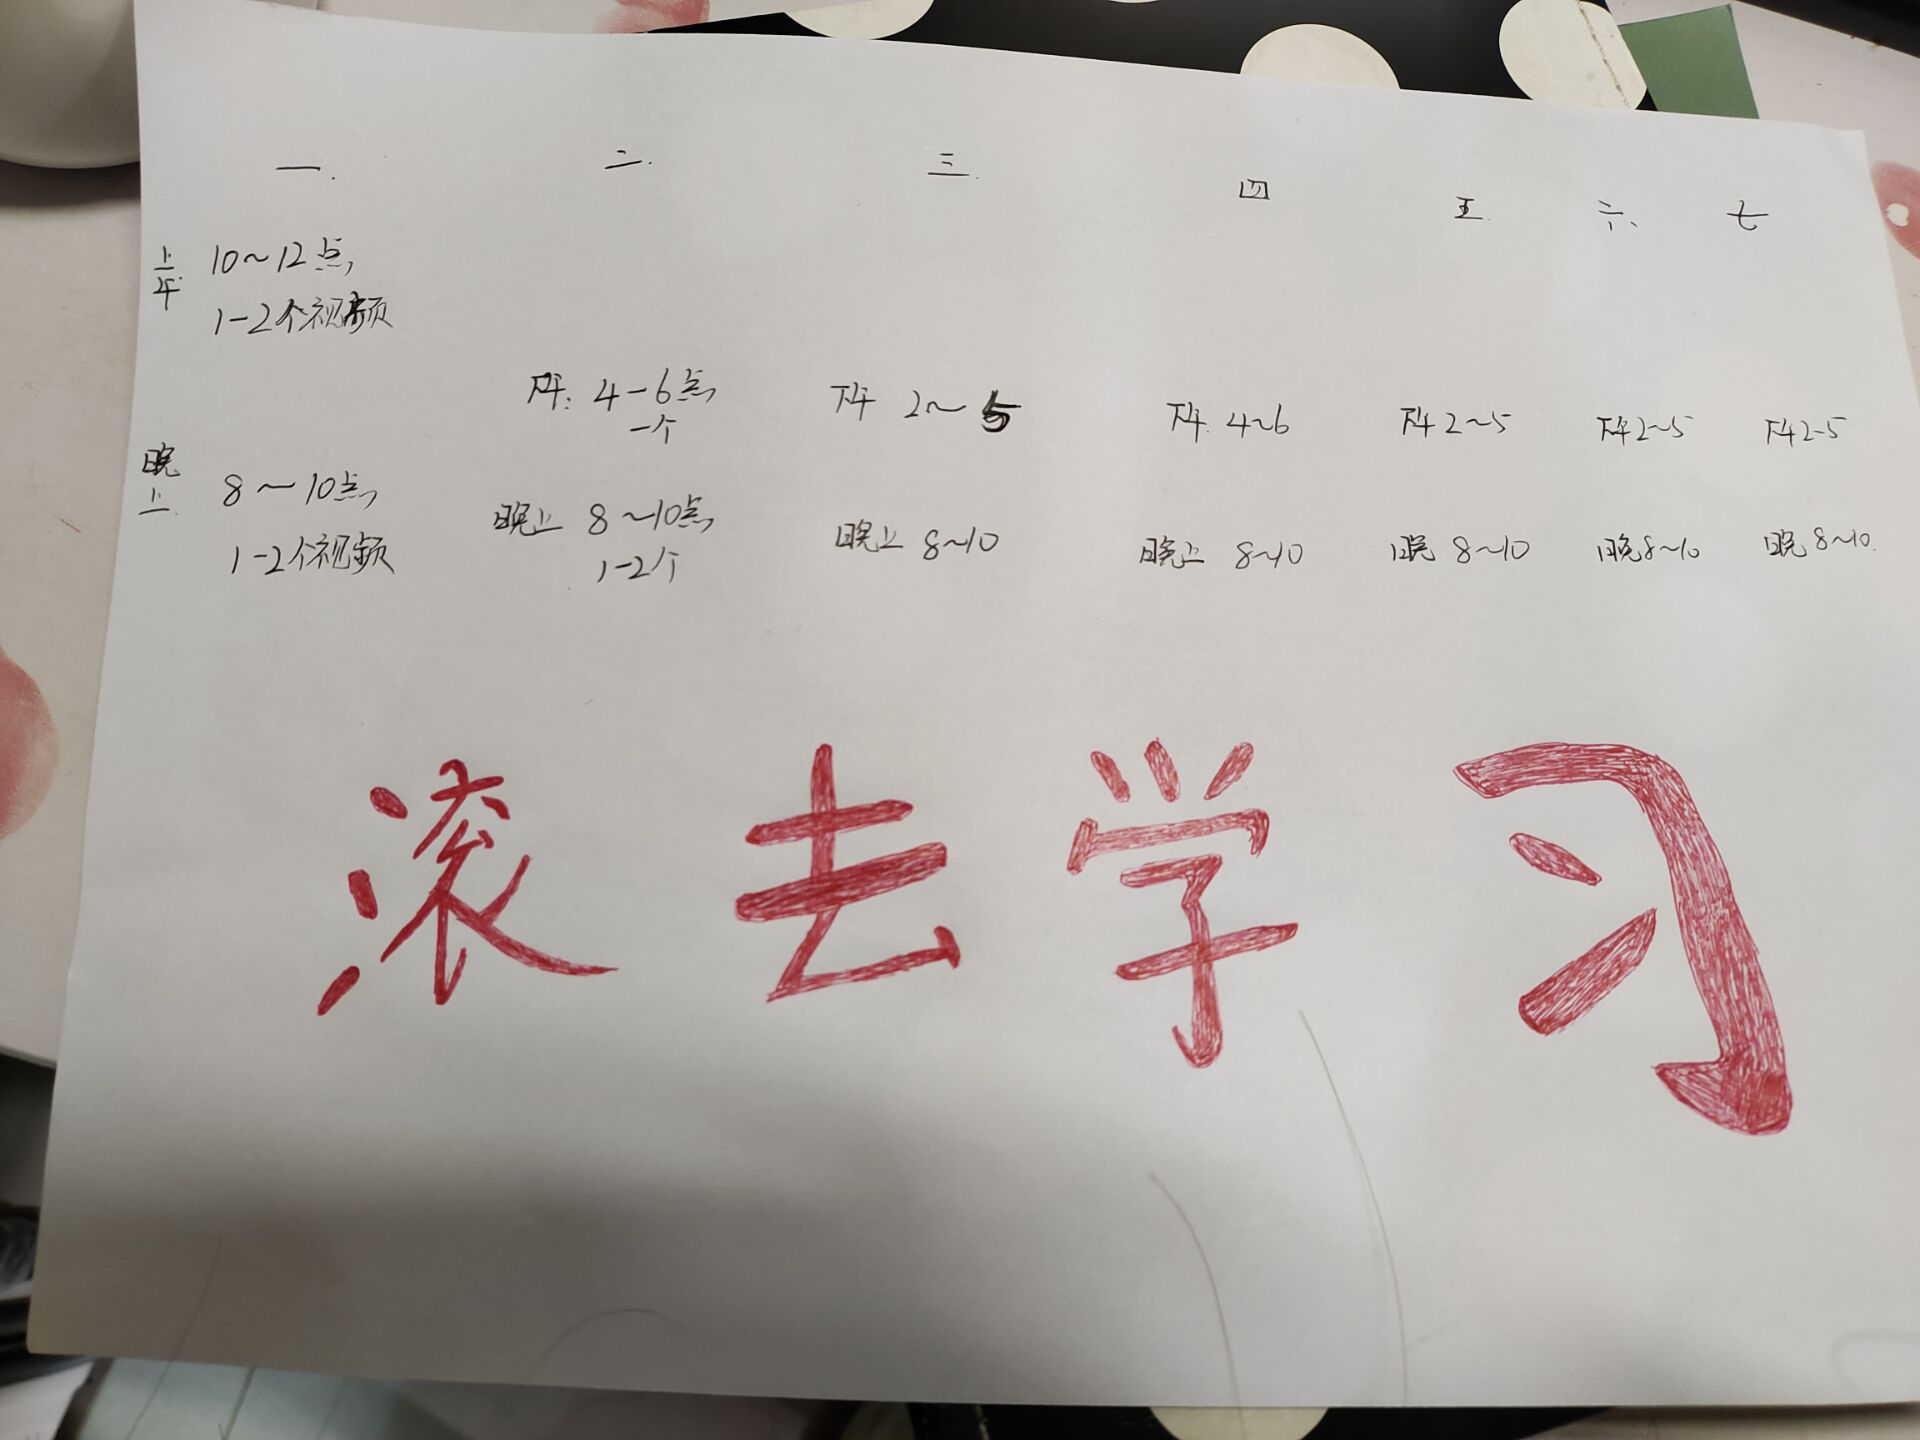 一. 二. 三. 四 五. 六、 七
上午 10～12点
1-2个视频
下午: 4-6点 下午 2～5 下午. 4~6 下午2~5 下午2~5 下午2-5
一个
晚上 8～10点
1-2个视频
晚上 8～10点 晚上 8~10 晚上 8~10 晚 8~10 晚8~10 晚8~10.
1-2个
滚去学习